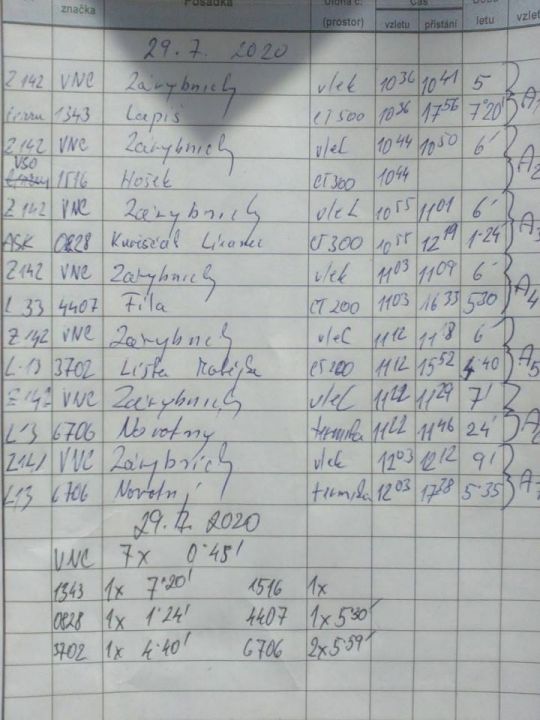 značka Posádka (prostor) vzletu přistání letu vzlet
29.7.2020
Z142 VNC Zárybnický vlek 10 36 10 41 5'
1343 Lapiš CT 500 10 36 17 56 7°20' A1
Z142 VNC Zárybnický vlek 10 44 10 50 6'
VSO 1516 Hošek CT 300 10 44 A2
Z142 VNC Zárybnický vlek 10 55 11 01 6'
ASK 0828 CT 300 10 55 12 19 1·24' A3
Z142 VNC Zárybnický vlek 11 03 11 09 6'
L 33 4407 Fila CT 200 11 03 16 33 5 30 A4
Z142 VNC Zárybnický vlek 11 12 11 18 6'
L·13 3702 CT 200 11 12 15 52 4·40 A5
Z142 VNC Zárybnický vlek 11 22 11 29 7'
L13 6706 Novotny termika 11 22 11 46 24'
Z142 VNC Zárybnický vlek 12 03 12 12 9'
L13 6706 Novotný termika 12 03 17 38 5·35
29.7. 2020
VNC 7x 0·45'
1343 1x 7°20' 1516 1x
0828 1x 1·24' 4407 1x 5·30'
3702 1x 4·40' 6706 2x 5·59'